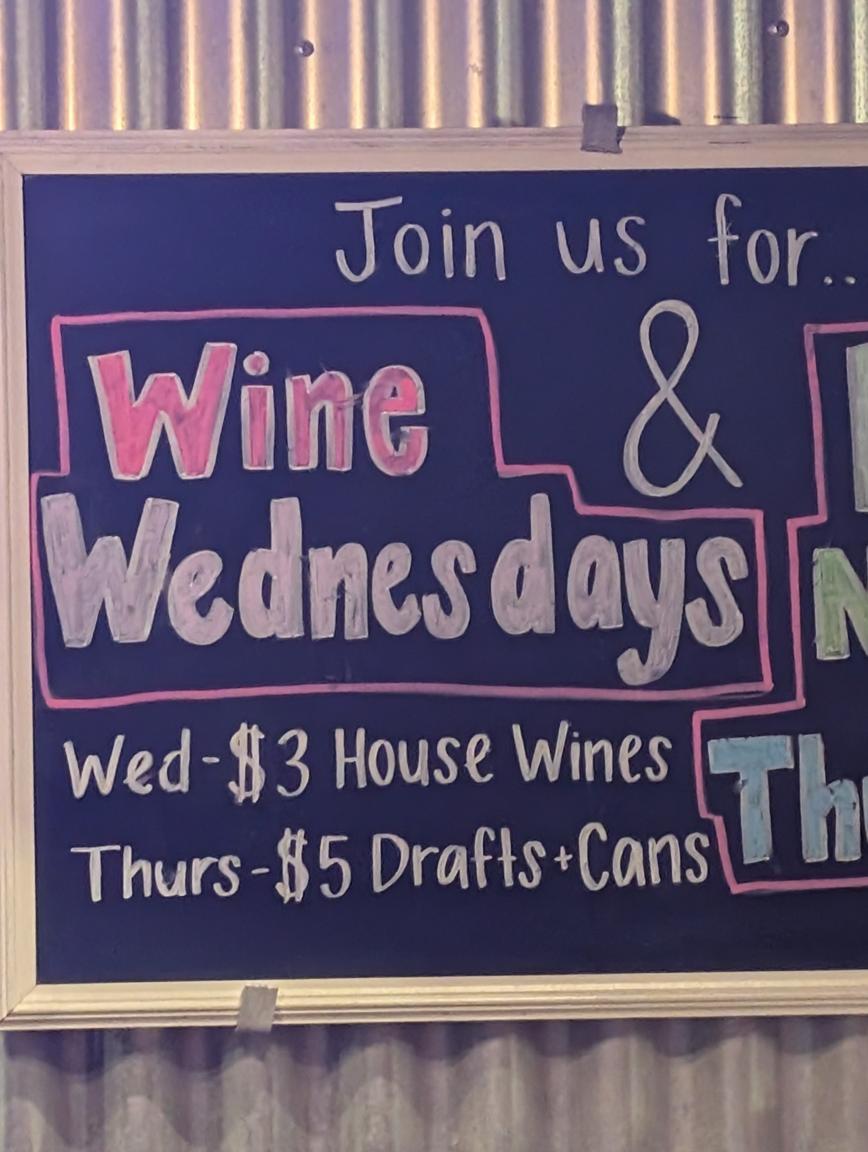 Join us for..
Wine
&
Wednesdays
Wed-$3 House Wines
Thurs-$5 Drafts+Cans